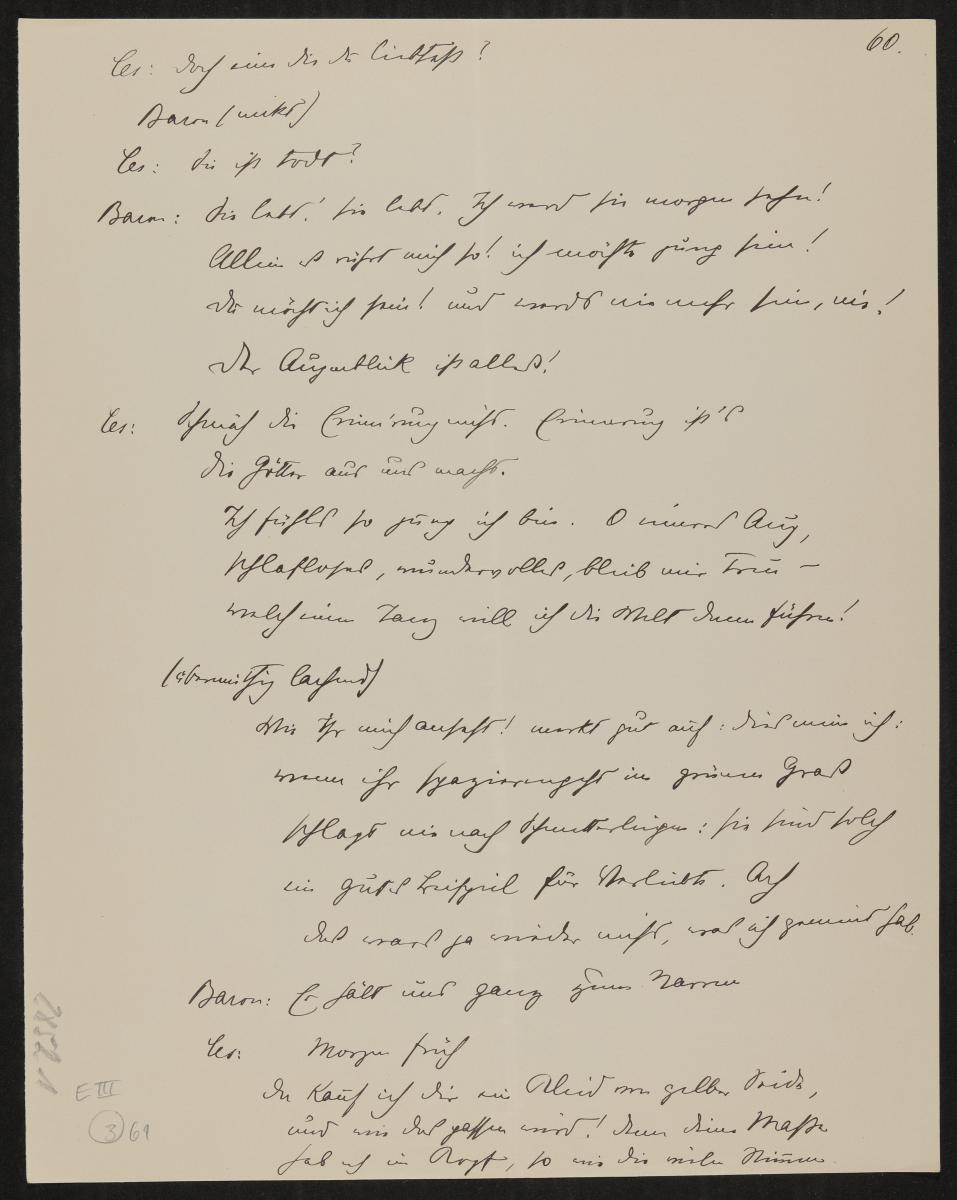 60.
Ces: doch eine die du liebtest?
Baron (nickt)
Ces: die ist todt?
Baron: Sie lebt! sie lebt. Ich werd sie morgen sehn!
Allein es rührt mich so! ich möchte jung sein!
der möcht ich sein! und werds nie mehr sein, nie!
Der Augenblick ist alles!
Ces: Schmäh die Erinn'rung nicht. Erinnerung ist's
die Götter aus uns macht.
Ich fühls so jung ich bin. O inneres Aug,
schlafloses, wundervolles, bleib mir treu –
welch einen Tanz will ich die Welt dann führen!
(übermüthig lachend)
Wie Ihr mich anseht! merkt gut auf: dies mein ich:
wenn ihr spazierengeht im grünen Gras
schlagt nie nach Schmetterlingen: sie sind solch
ein gutes Beispiel für Verliebte. Ach
das wars ja wieder nicht, was ich gemeint hab.
Baron: Er hält uns ganz zum Narren
Ces: Morgen früh
da kauf ich dir ein Kleid von gelber Seide,
und wie das passen wird! denn deine Maße
hab ich im Kopf, so wie die vielen Stimmen
E III
3 61